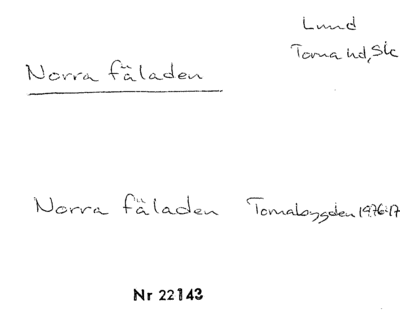 Lund
Torna hd, Sk
Norra fäladen
Norra fäladen Tornabygden 1976:17
Nr 22143